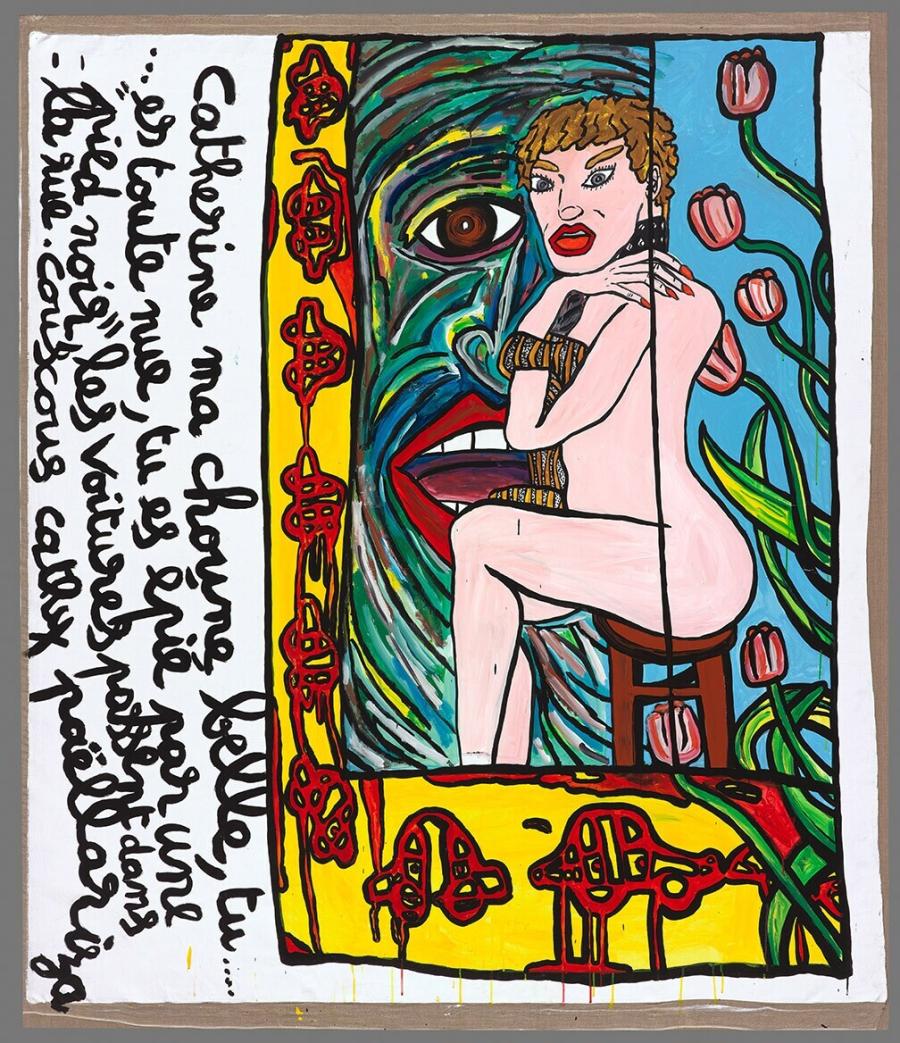 Catherine ma choune belle, tu....
... es toute nue, tu es épié par une
- "pied noir" les voitures passent dans
- la rue. couscous